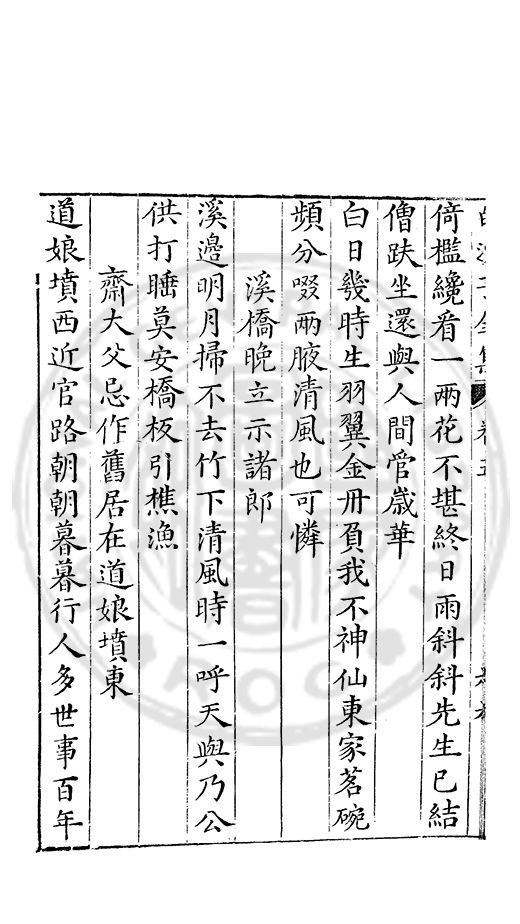 倚檻纔看一兩花不堪終日雨斜斜先生已結
僧趺坐還與人間管歲華
白日幾時生羽翼金丹負我不神仙東家茗碗
頻分啜兩腋清風也可憐
溪橋晚立示諸郎
溪邉明月掃不去竹下清風時一呼天與乃公
供打睡莫安橋板引樵漁
齋大父忌作舊居在道娘墳東
道娘墳西近官路朝朝暮暮行人多世事百年